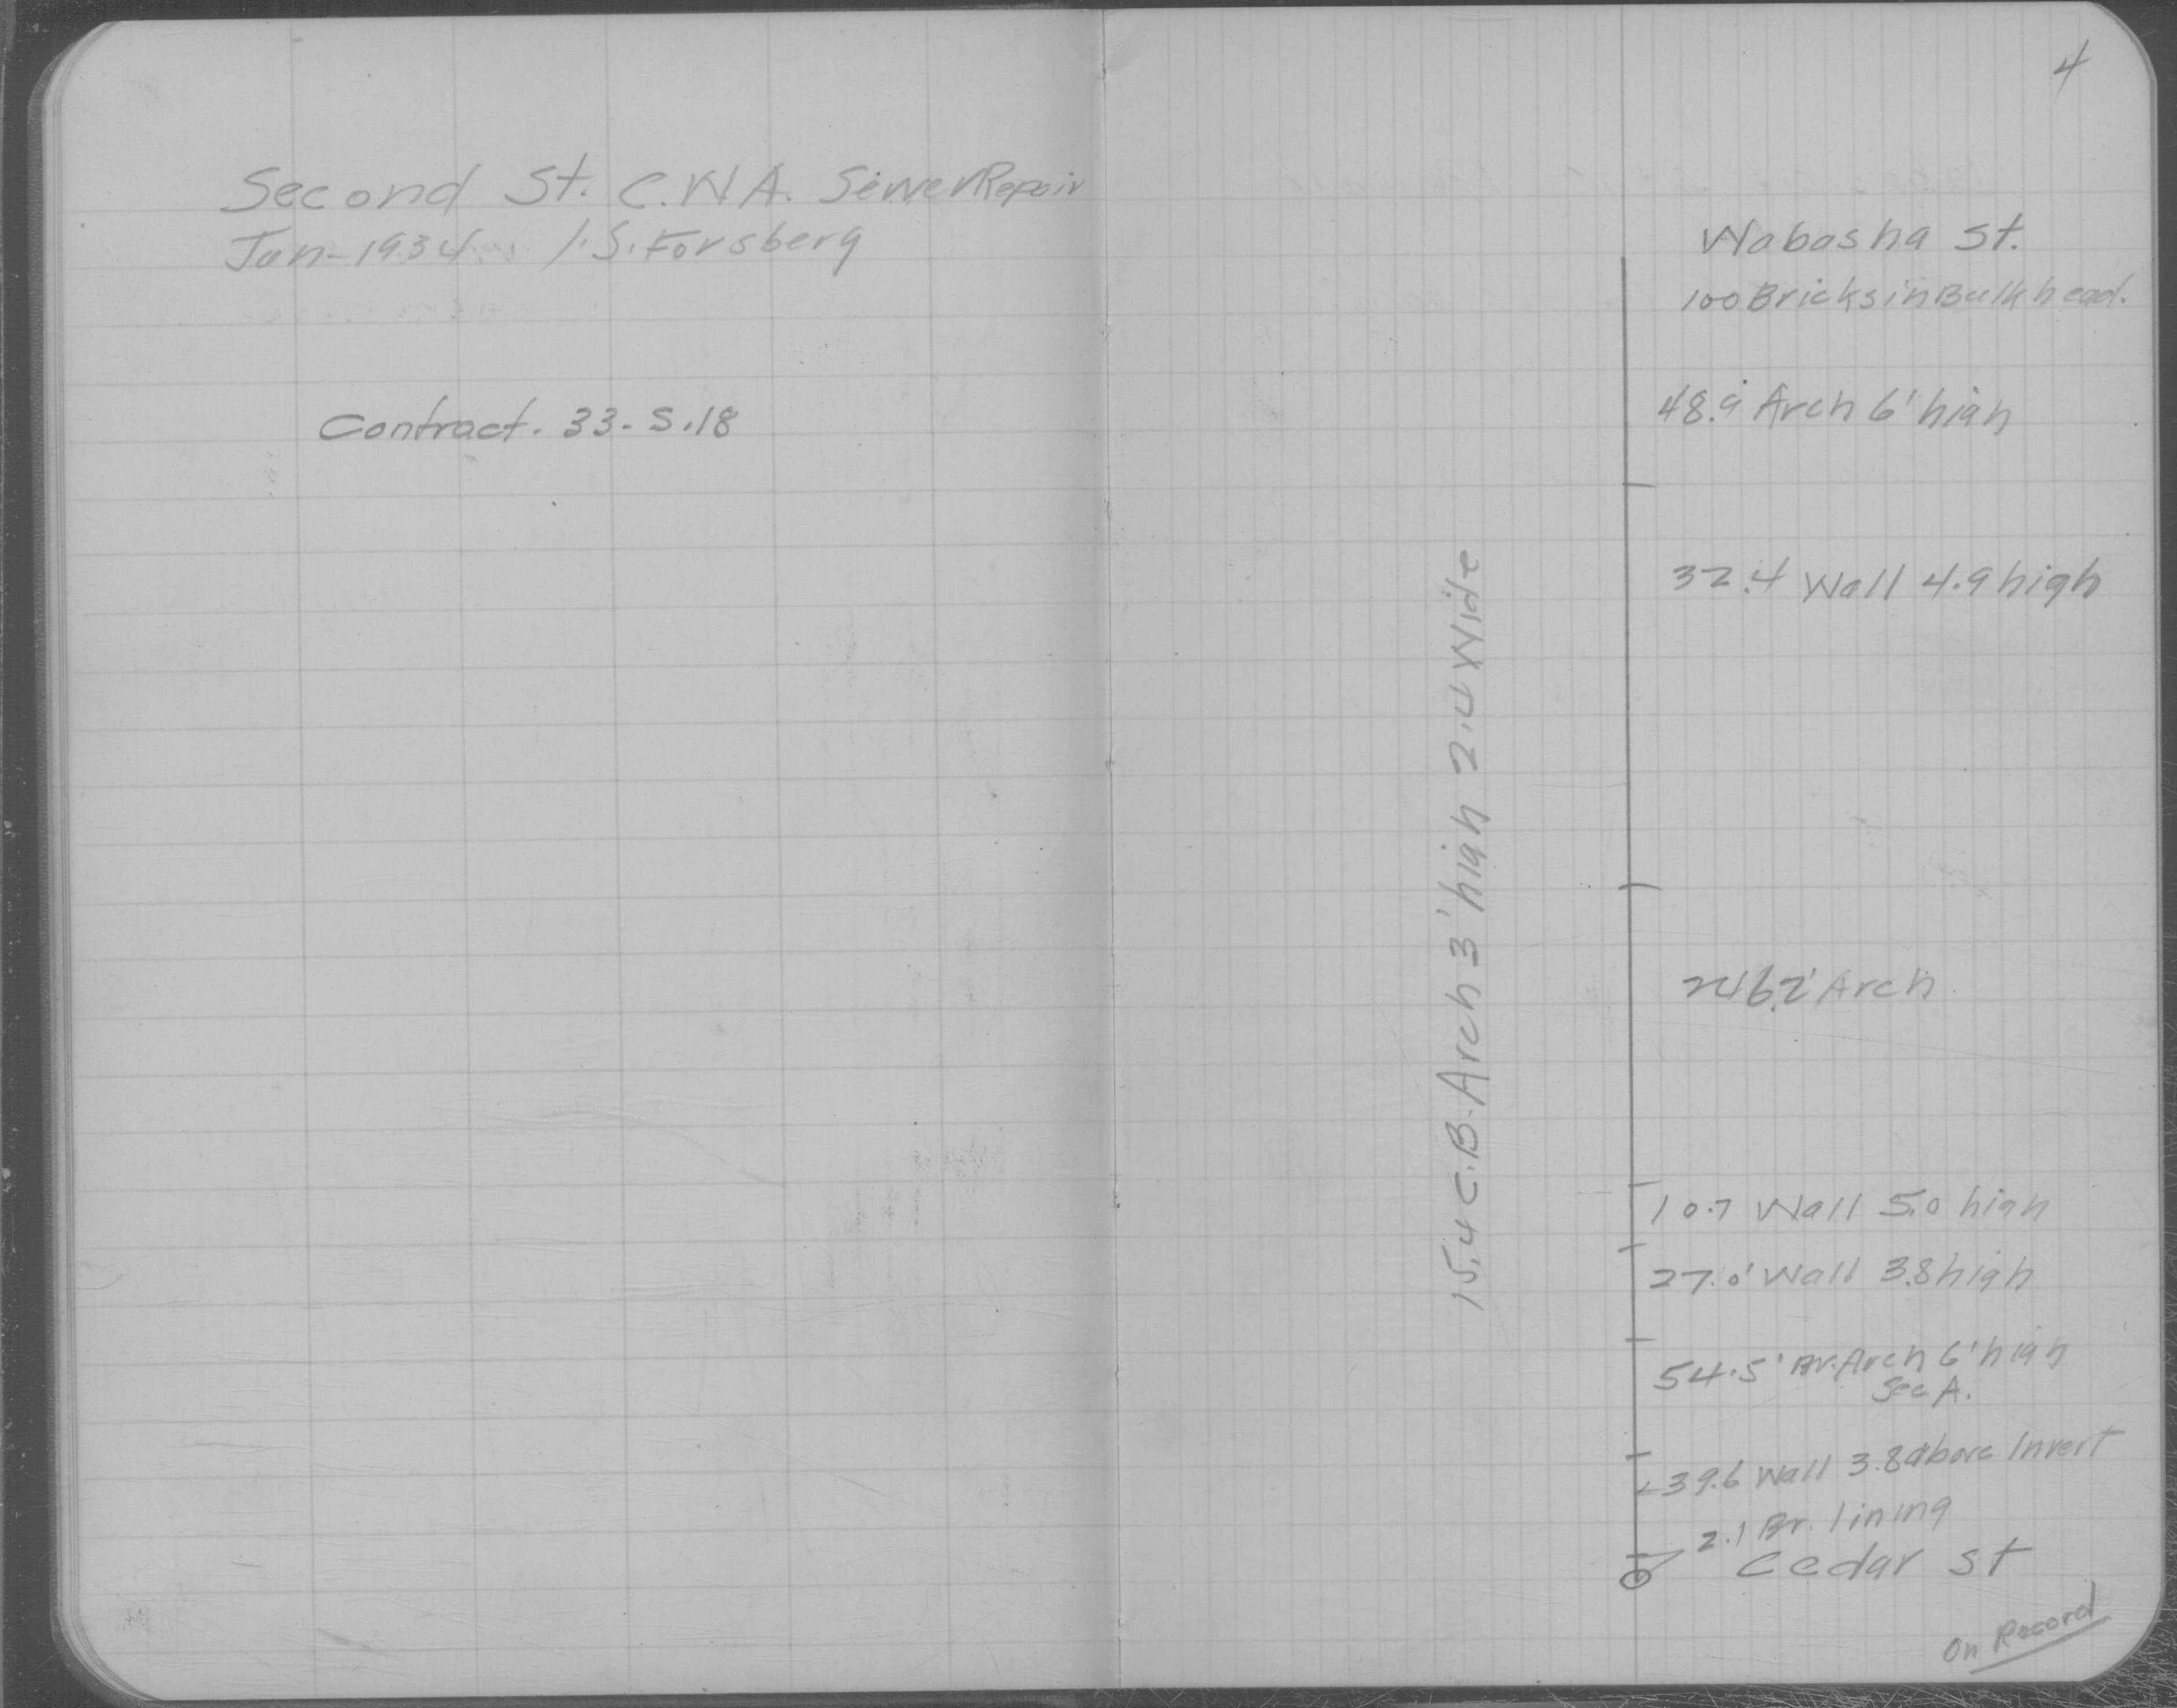 Second St. C.W.A. Sewer Repair
Jan-1934 I.S. Forsberg
Contract. 33-S.18
4
Wabasha St.
100 Bricks in Bulkhead.
48.9 Arch 6' high
32.4 Wall 4.9 high
15.4 C.B. Arch 3' high 2.4 Wide
Arch
10.7 Wall 5.0 high
27.0' Wall 3.8 high
54.5' Br. Arch 6' high
Sec A.
39.6 Wall 3.8 above Invert
2.1 Br. lining
Cedar St
On Record